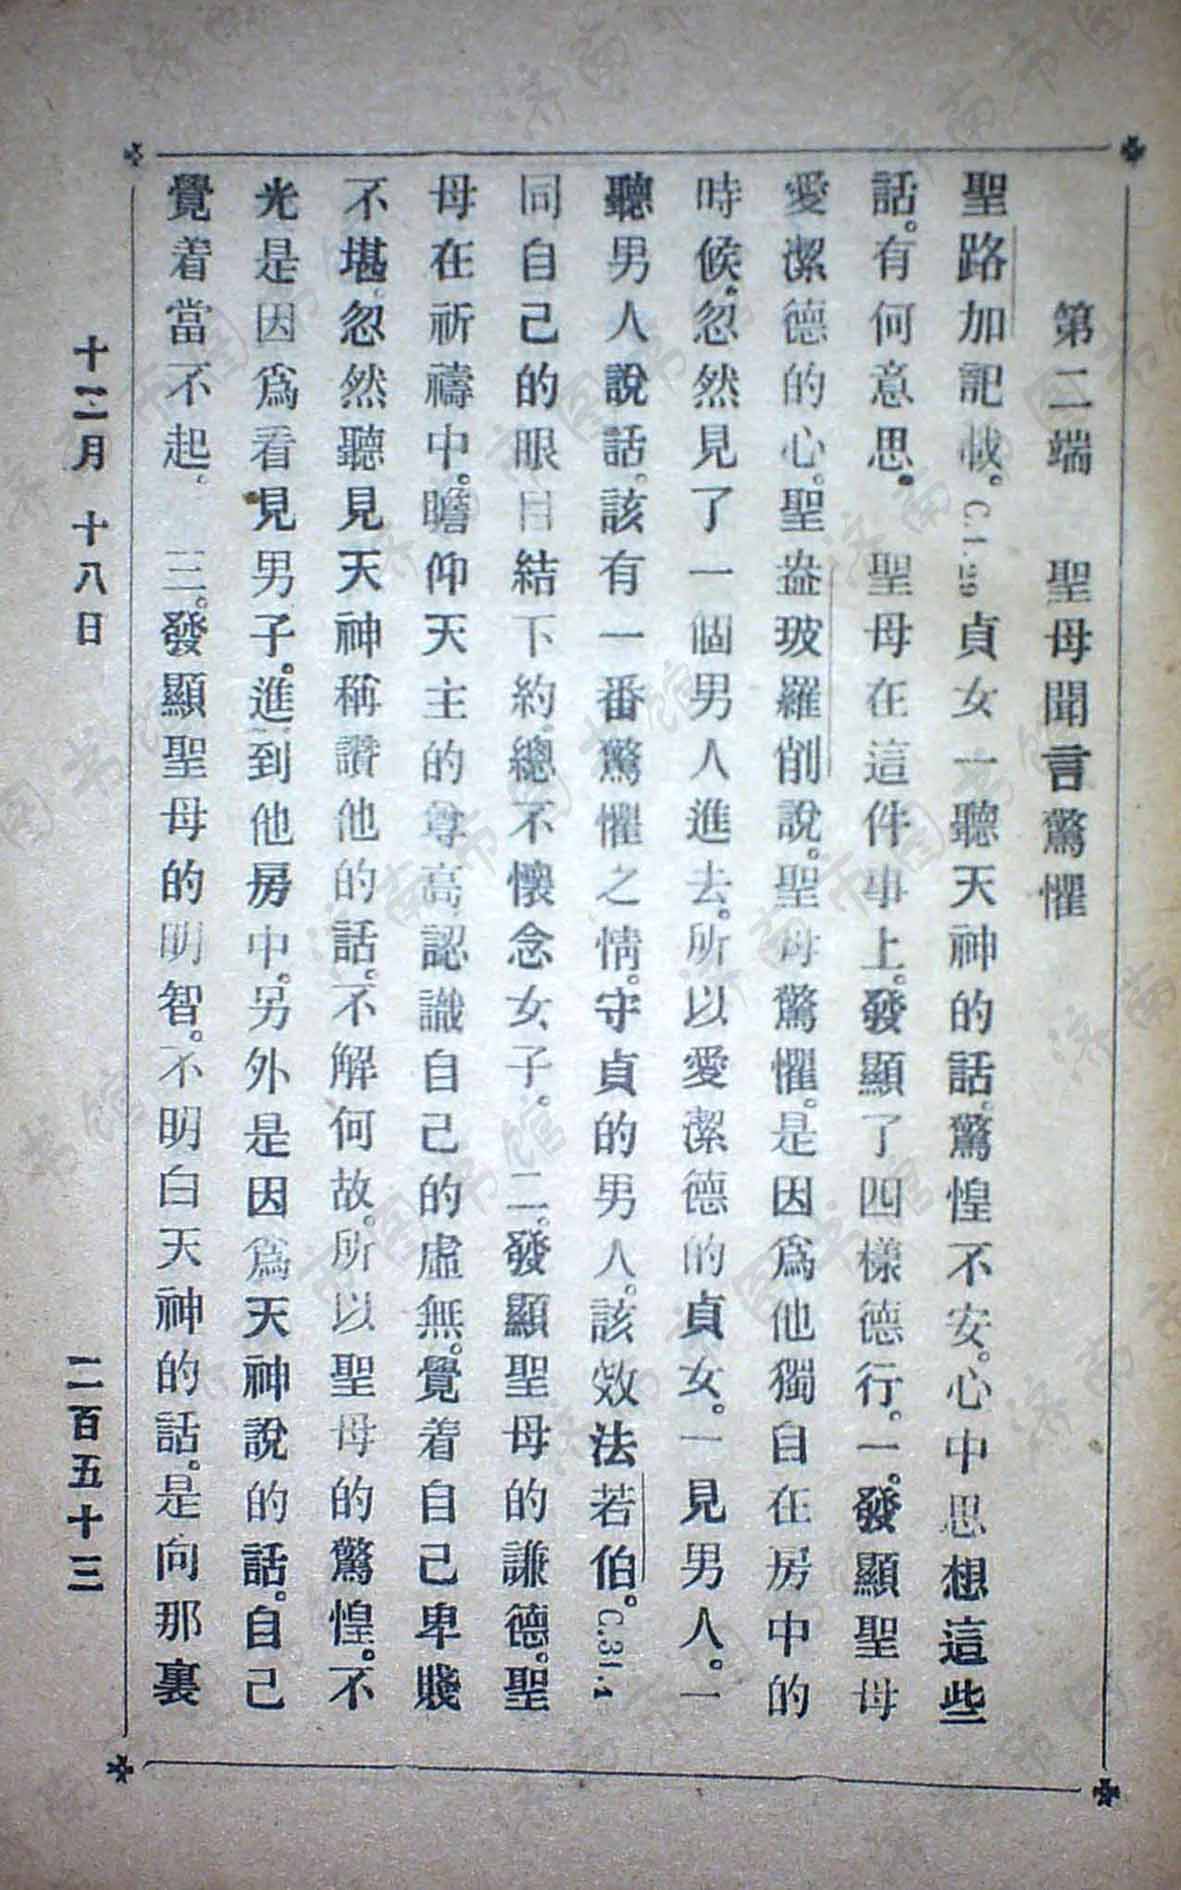 第二端　聖母聞言驚懼
聖路加記載。C.1.29 貞女一聽天神的話。驚惶不安。心中思想這些
話。有何意思。　聖母在這件事上。發顯了四樣德行。一。發顯聖母
愛潔德的心。聖盎玻羅削說。聖母驚懼。是因爲他獨自在房中的
時候。忽然見了一個男人進去。所以愛潔德的貞女。一見男人。一
聽男人說話。該有一番驚懼之情。守貞的男人。該效法若伯。C.31.1
同自己的眼目結下約。總不懷念女子。　二。發顯聖母的謙德。聖
母在祈禱中。瞻仰天主的尊高。認識自己的虛無。覺着自己卑賤
不堪。忽然聽見天神稱讚他的話。不解何故。所以聖母的驚惶。不
光是因爲看見男子。進到他房中。另外是因爲天神說的話。自己
覺着當不起。　三。發顯聖母的明智。不明白天神的話。是向那裏
十二月　十八日
二百五十三
济南市图书馆